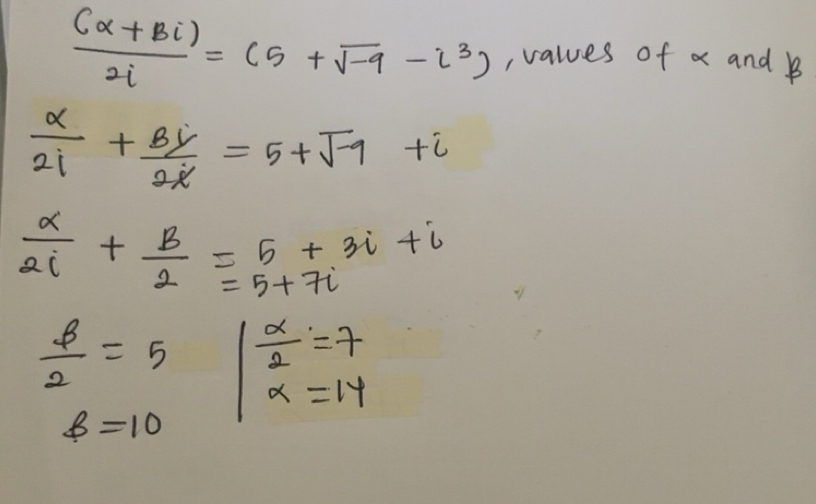 (α + Bi)/2i = (5 + √-9 - i³), values of α and β
α/2i + Bi/2i = 5 + √-9 + i
α/2i + B/2 = 5 + 3i + i
= 5 + 7i
β/2 = 5 | α/2 = 7
β = 10 | α = 14